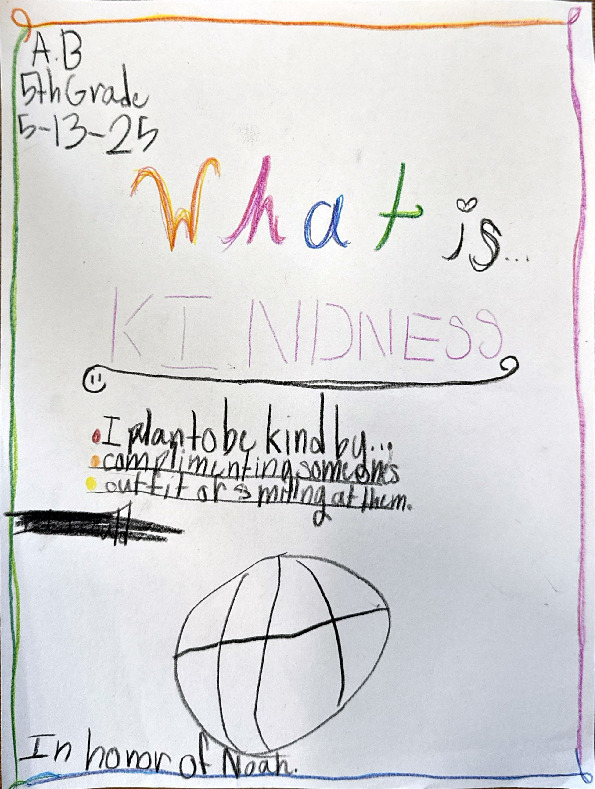 A.B
5th Grade
5-13-25
What is...
KINDNESS
I plan to be kind by...
complimenting someones
outfit or smiling at them.
In honor of Noah.